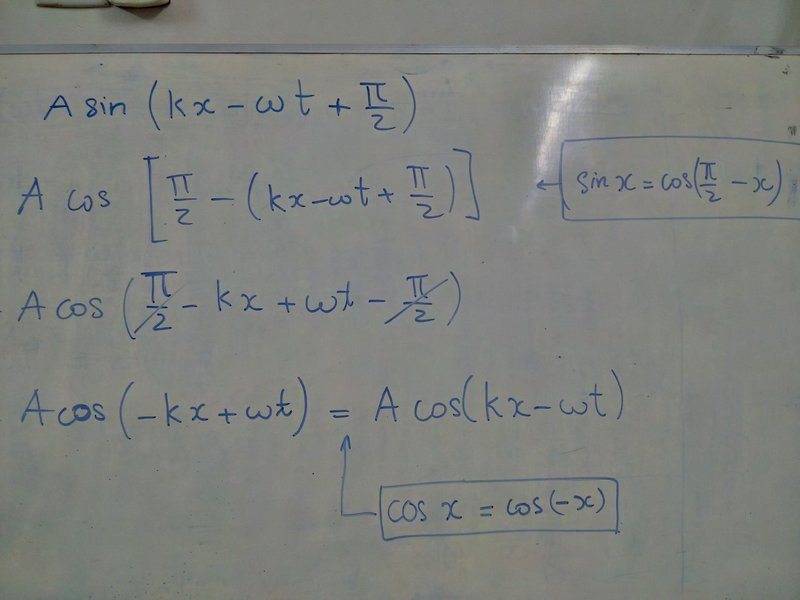 A sin (kx - ωt + π/2)
A cos [π/2 - (kx - ωt + π/2)] ← sin x = cos(π/2 - x)
A cos (π/2 - kx + ωt - π/2)
A cos (-kx + ωt) = A cos(kx - ωt)
cos x = cos(-x)